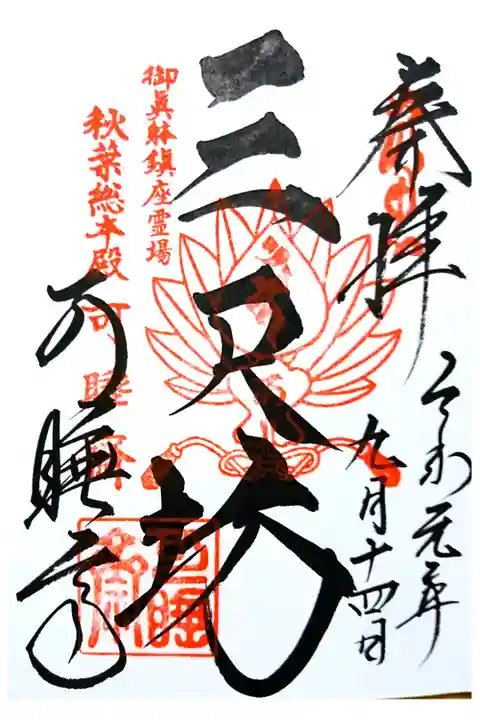 奉拝
令和元年
九月十四日
三尺坊
御眞躰鎮座霊場
秋葉総本殿 可睡斎
可睡斎
可睡斎